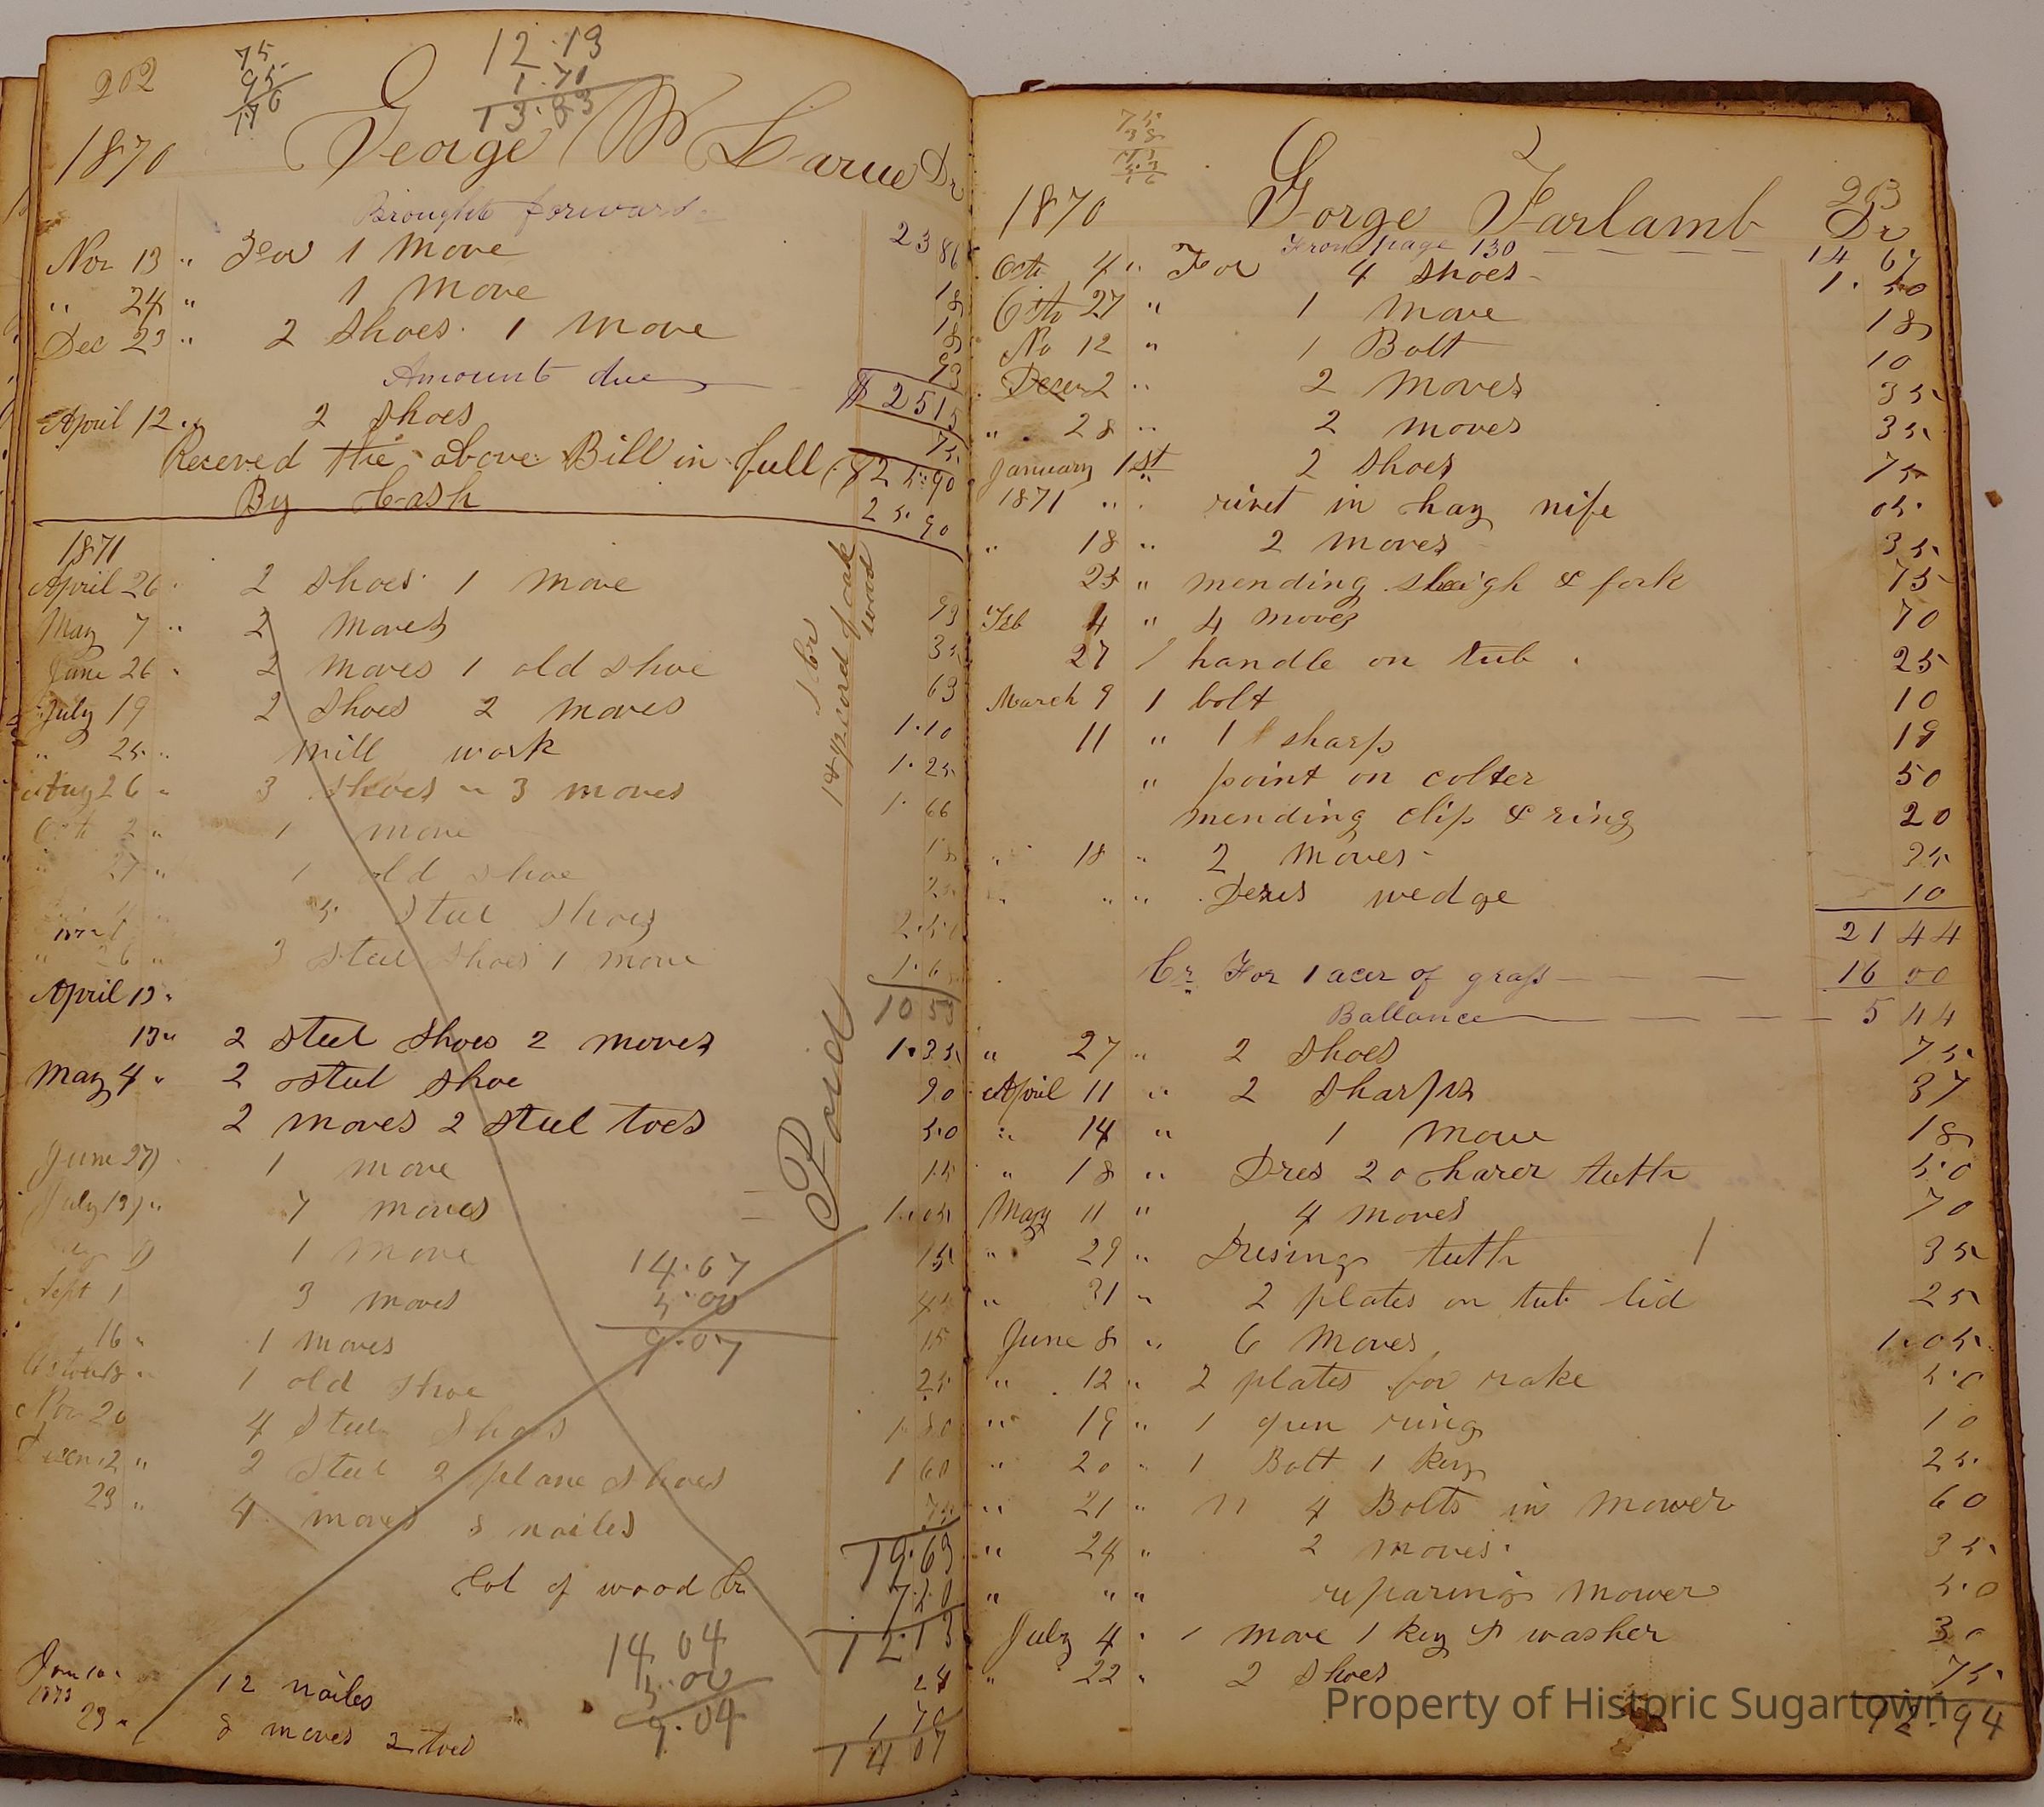 202
75
95
170
12.13
1.70
13.83
1870 George W Larue Dr
Brought forward 23 86
Nov 13 " For 1 Move 18
" 24 " 1 Move 18
Dec 23 " 2 Shoes 1 Move 93
Amount due $ 25 15
April 12 " 2 Shoes 75
Receved the above Bill in full $25.90
By Cash 25.90
1871
April 26 " 2 Shoes 1 Move 93
May 7 " 2 Moves 35
June 26 " 2 Moves 1 old Shoe 63
July 19 2 Shoes 2 Moves 1.10
" 25 " Mill work 1.25
Aug 26 " 3 Shoes " 3 Moves 1.66
Oct 2 " 1 move 18
" 27 " 1 old Shoe
5 Steel Shoes
" 26 " 3 Steel Shoes 1 move
10 53
April 13 "
13 " 2 Steel Shoes 2 moves 1.35
May 4 " 2 Steel Shoe 90
2 moves 2 Steel toes 50
June 27 1 Move 15
July 13 " 7 moves 1.05
1 Move 15
Sept 1 3 Moves 45
16 " 1 Moves 15
1 old Shoe 25
Nov 20 4 Steel Shoes 1.80
Decem 2 " 2 Steel 2 plane Shoes 1 60
23 " 4 moves 8 nailes 75
19.63
Col of wood Cr 7.50
12.13
Jan 10 12 nailes 24
1873
23 " 8 moves 2 toes 1 70
14 07
cord of oak wood
Paid
14.67
5.00
9.07
14.04
5.00
9.04
203
1870 Gorge Farlamb Dr
From page 130 14 67
Octo 4 " For 4 Shoes 1.50
Octo 27 " 1 Move 18
No 12 " 1 Bolt 10
Decem 2 " 2 Moves 35
" 28 " 2 moves 35
January 1st 2 Shoes 75
1871 " rivet in hay nife 05
" 18 " 2 Moves 35
25 " mending sleigh & fork 75
Feb 4 " 4 moves 70
27 1 handle on tub 25
March 9 1 bolt 10
11 " 1 sharp 18
" point on colter 50
mending clip & ring 20
" 18 " 2 Moves 35
" " " Dres wedge 10
21 44
Cr For 1 acer of grass 16 00
Ballance 5 44
" 27 " 2 Shoes 75
April 11 " 2 Sharps 37
" 14 " 1 Move 18
" 18 " Dres 20 harer teeth 50
May 11 " 4 Moves 70
" 29 " Dresing teeth 35
" 31 " 2 plates on tub lid 25
June 8 " 6 Moves 1.05
" 12 " 2 plates for rake 50
" 19 " 1 open ring 10
" 20 " 1 Bolt 1 Key 25
" 21 " 4 Bolts in Mower 60
" 24 " 2 Moves 35
" " " reparing Mower 50
July 4 " 1 Move 1 key & washer 30
" 22 " 2 Shoes 75
12.94
Property of Historic Sugartown